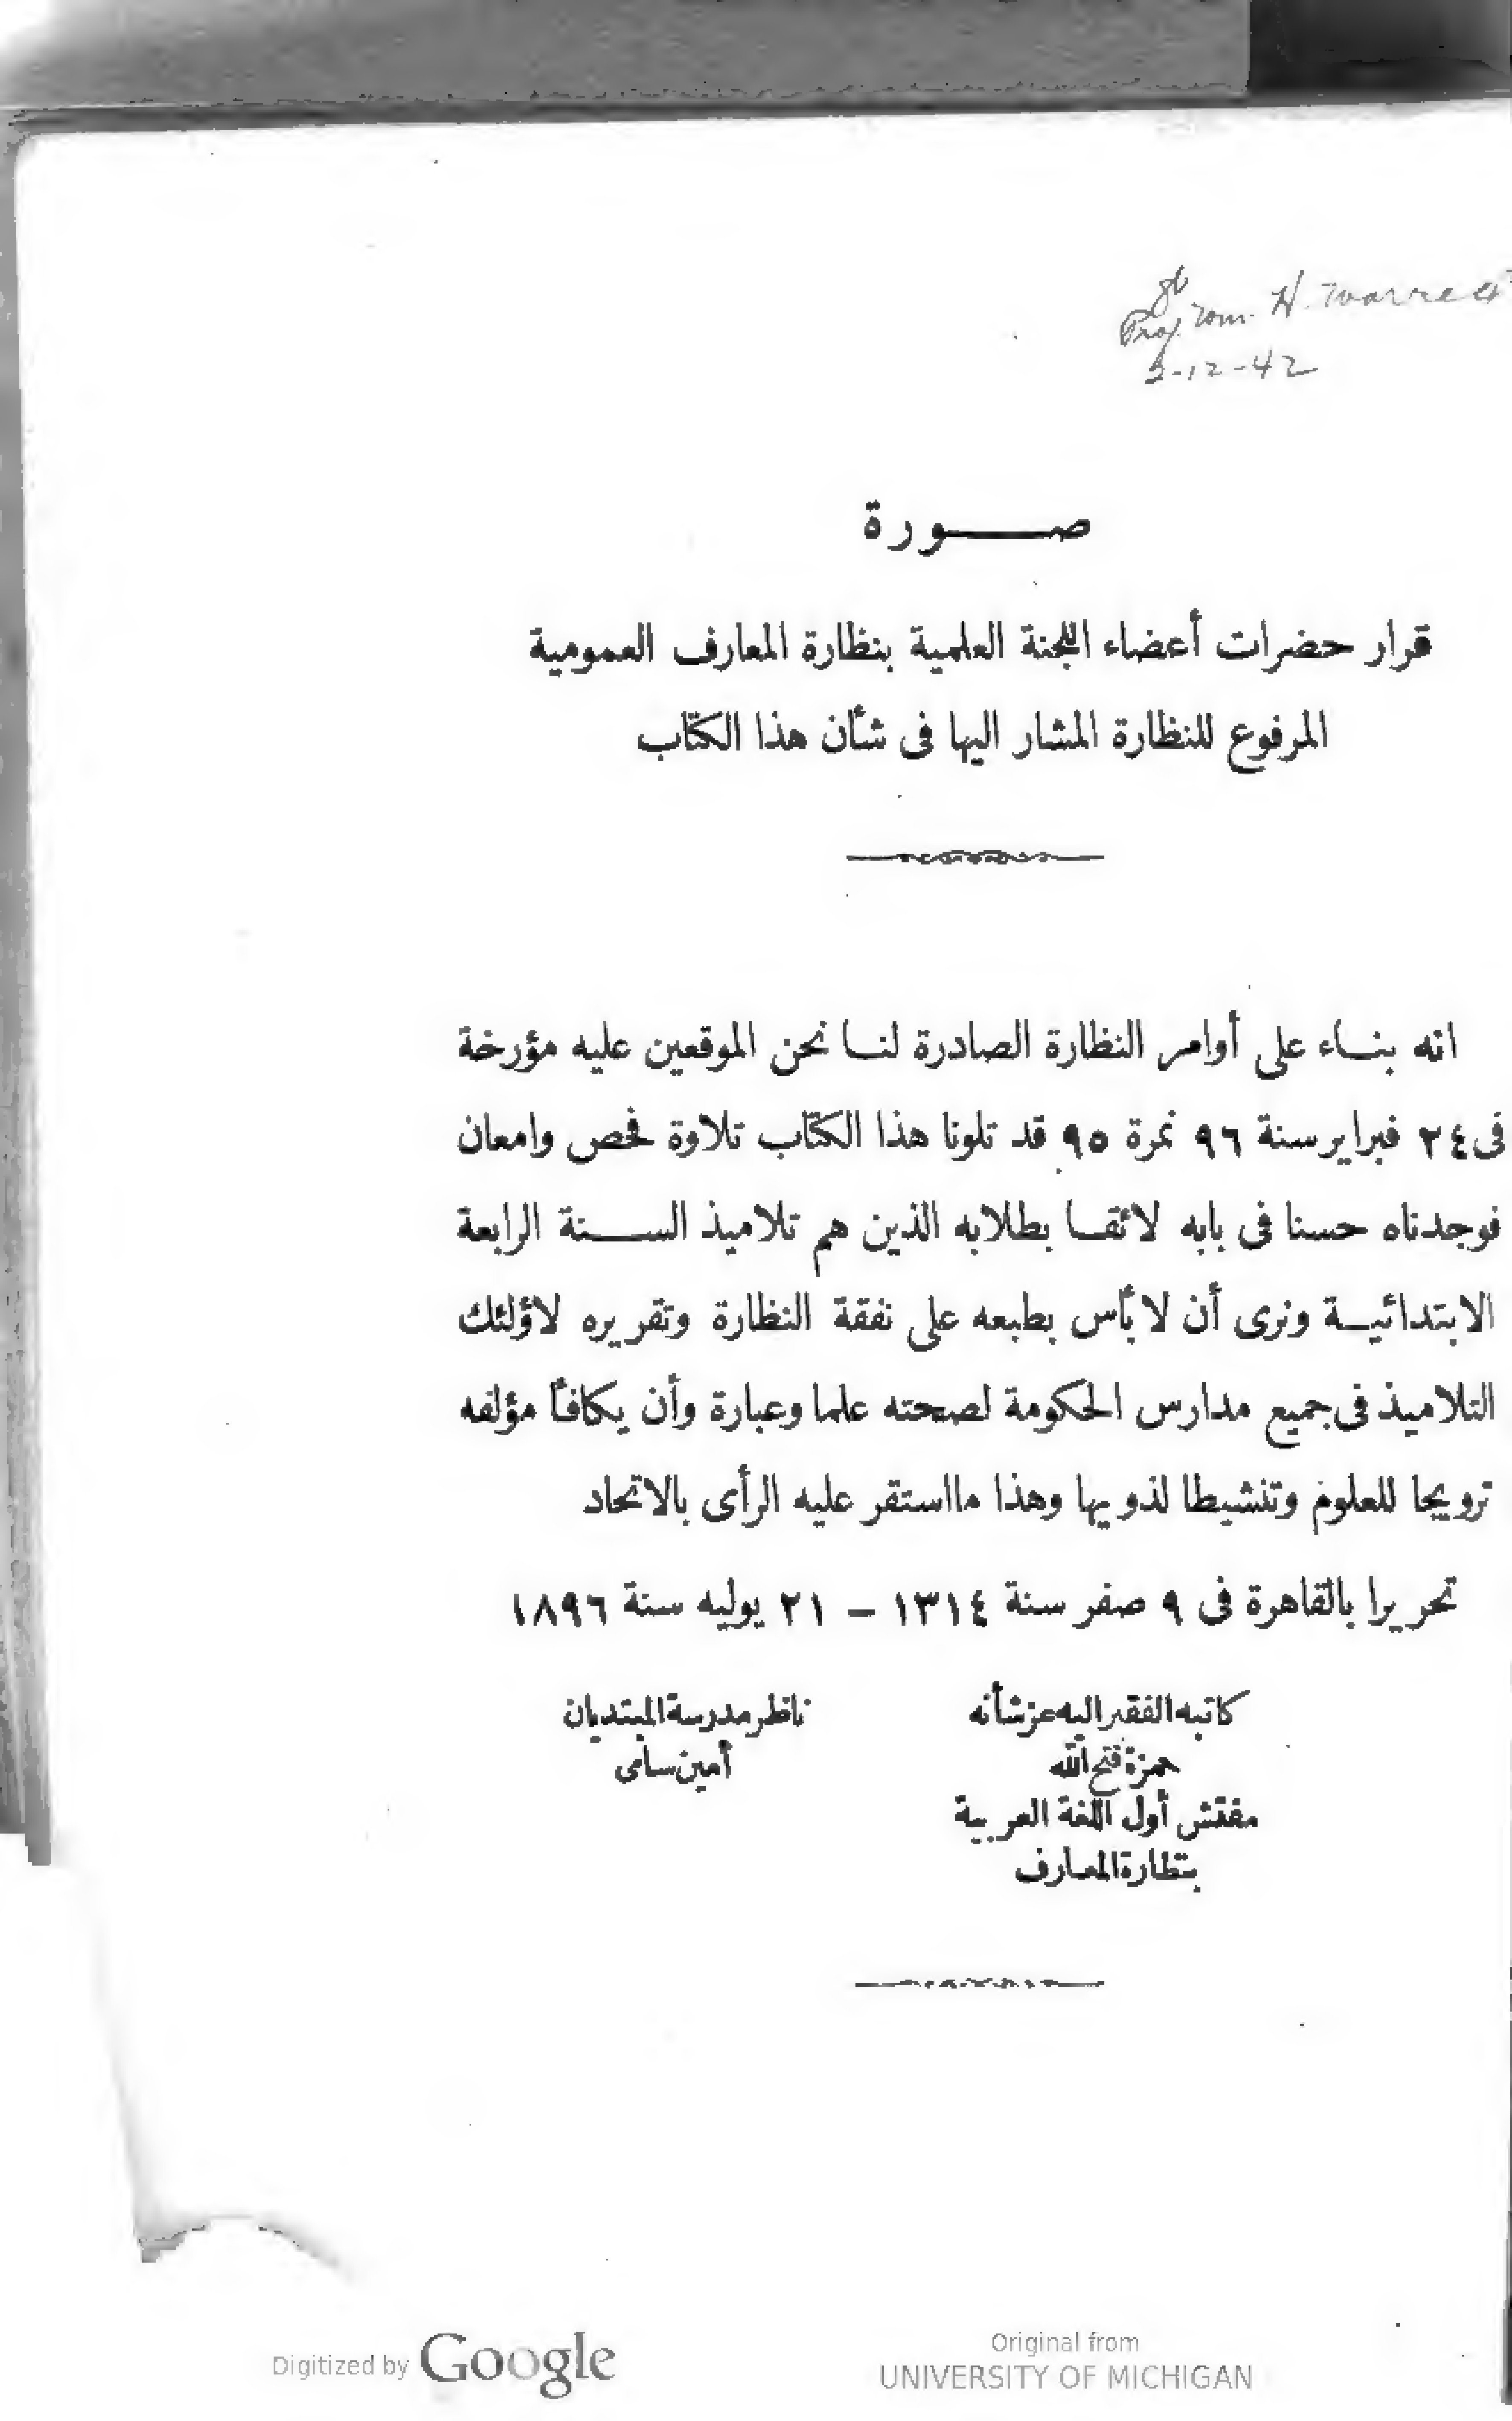 Prof. Wm. H. Worrell
3-12-42
صورة
قرار حضرات أعضاء اللجنة العلمية بنظارة المعارف العمومية
المرفوع للنظارة المشار اليها فى شأن هذا الكتاب
انه بناء على أوامر النظارة الصادرة لنا نحن الموقعين عليه مؤرخة
فى ٢٤ فبراير سنة ٩٦ نمرة ٩٥ قد تلونا هذا الكتاب تلاوة فحص وامعان
فوجدناه حسنا فى بابه لائقا بطلابه الذين هم تلاميذ السنة الرابعة
الابتدائية ونرى أن لا بأس بطبعه على نفقة النظارة وتقريره لاؤلئك
التلاميذ فى جميع مدارس الحكومة لصحته علما وعبارة وأن يكافأ مؤلفه
ترويحا للعلوم وتنشيطا لذويها وهذا مااستقر عليه الرأى بالاتحاد
تحريرا بالقاهرة فى ٩ صفر سنة ١٣١٤ – ٢١ يوليه سنة ١٨٩٦
كاتبه الفقير اليه عز شأنه
حمزة فتح الله
مفتش أول اللغة العربية
بنظارة المعارف
ناظر مدرسة المبتديان
أمين سامى
Digitized by Google
Original from
UNIVERSITY OF MICHIGAN